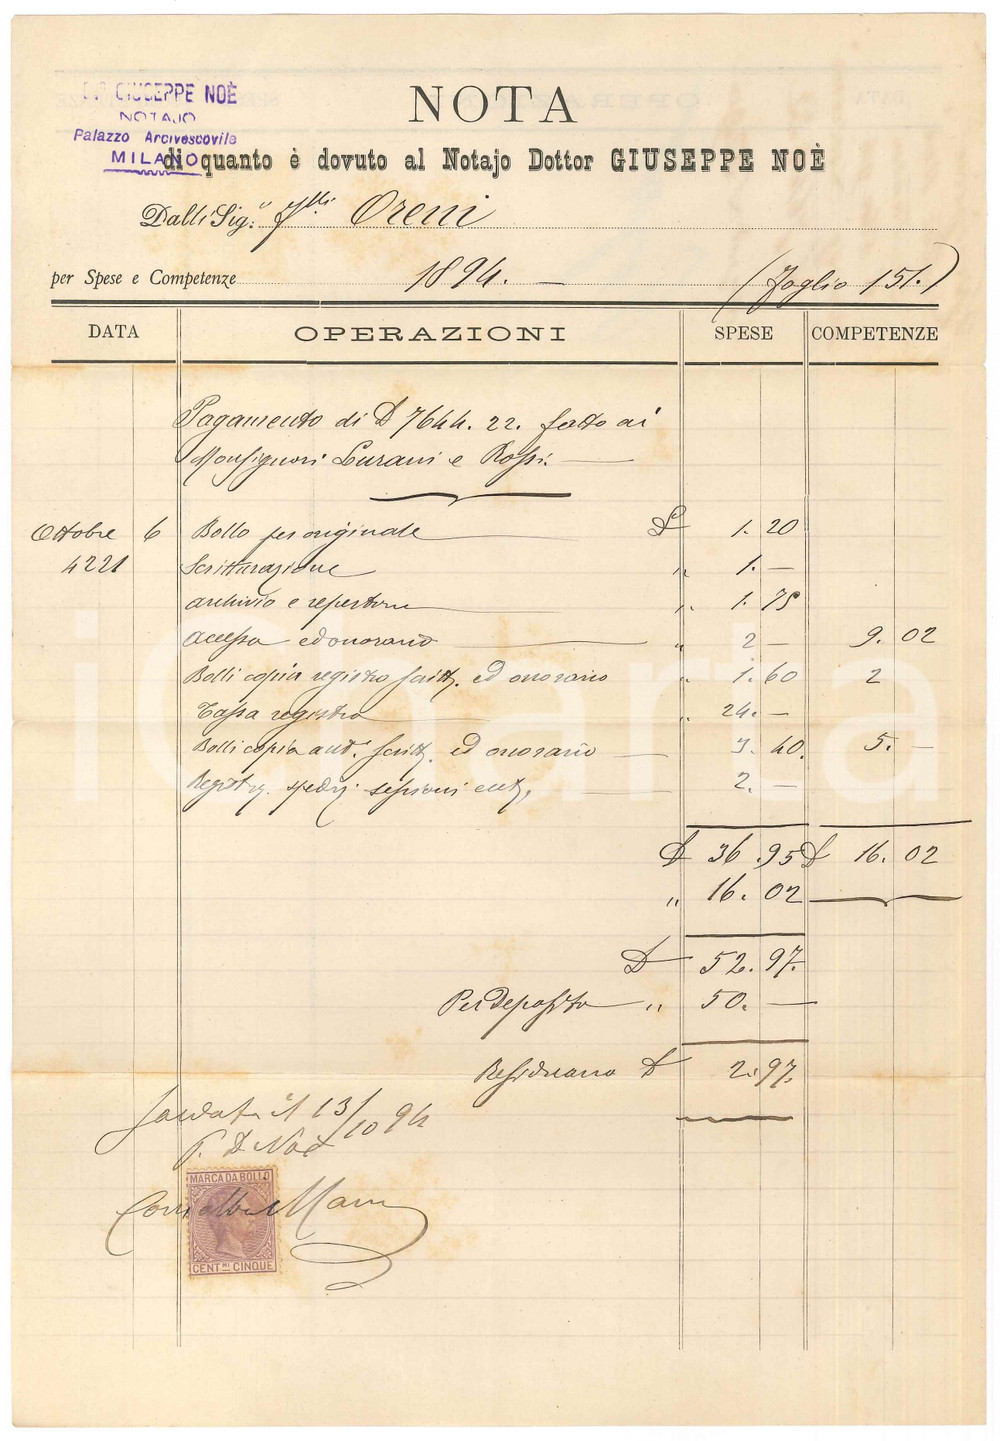 Dr. GIUSEPPE NOÈ
NOTAJO
Palazzo Arcivescovile
MILANO
NOTA
di quanto è dovuto al Notajo Dottor GIUSEPPE NOÈ
Dalli Sig.ri f.lli Oreni
per Spese e Competenze 1894. — (foglio 151.)
DATA OPERAZIONI SPESE COMPETENZE
Pagamento di £ 7644. 22. fatto ai
Monsignori Lurani e Rossi.
Ottobre 6 Bollo per originale £ 1. 20
4221 Scritturazione " 1. —
archivio e repertorio " 1. 75
accesso ed onorario " 2 — 9. 02
Bolli copia registro scritt. ed onorario " 1. 60 2
Tassa registro " 24. —
Bolli copia aut. scritt. ed onorario — 3. 40. 5. —
sessioni 2. —
£ 36. 95 £ 16. 02
" 16. 02
£ 52. 97.
Per deposito " 50. —
Residuano £ 2. 97.
Saldata il 13/10 94
P. D. Noè
MARCA DA BOLLO
CENT.MI CINQUE
iCharta